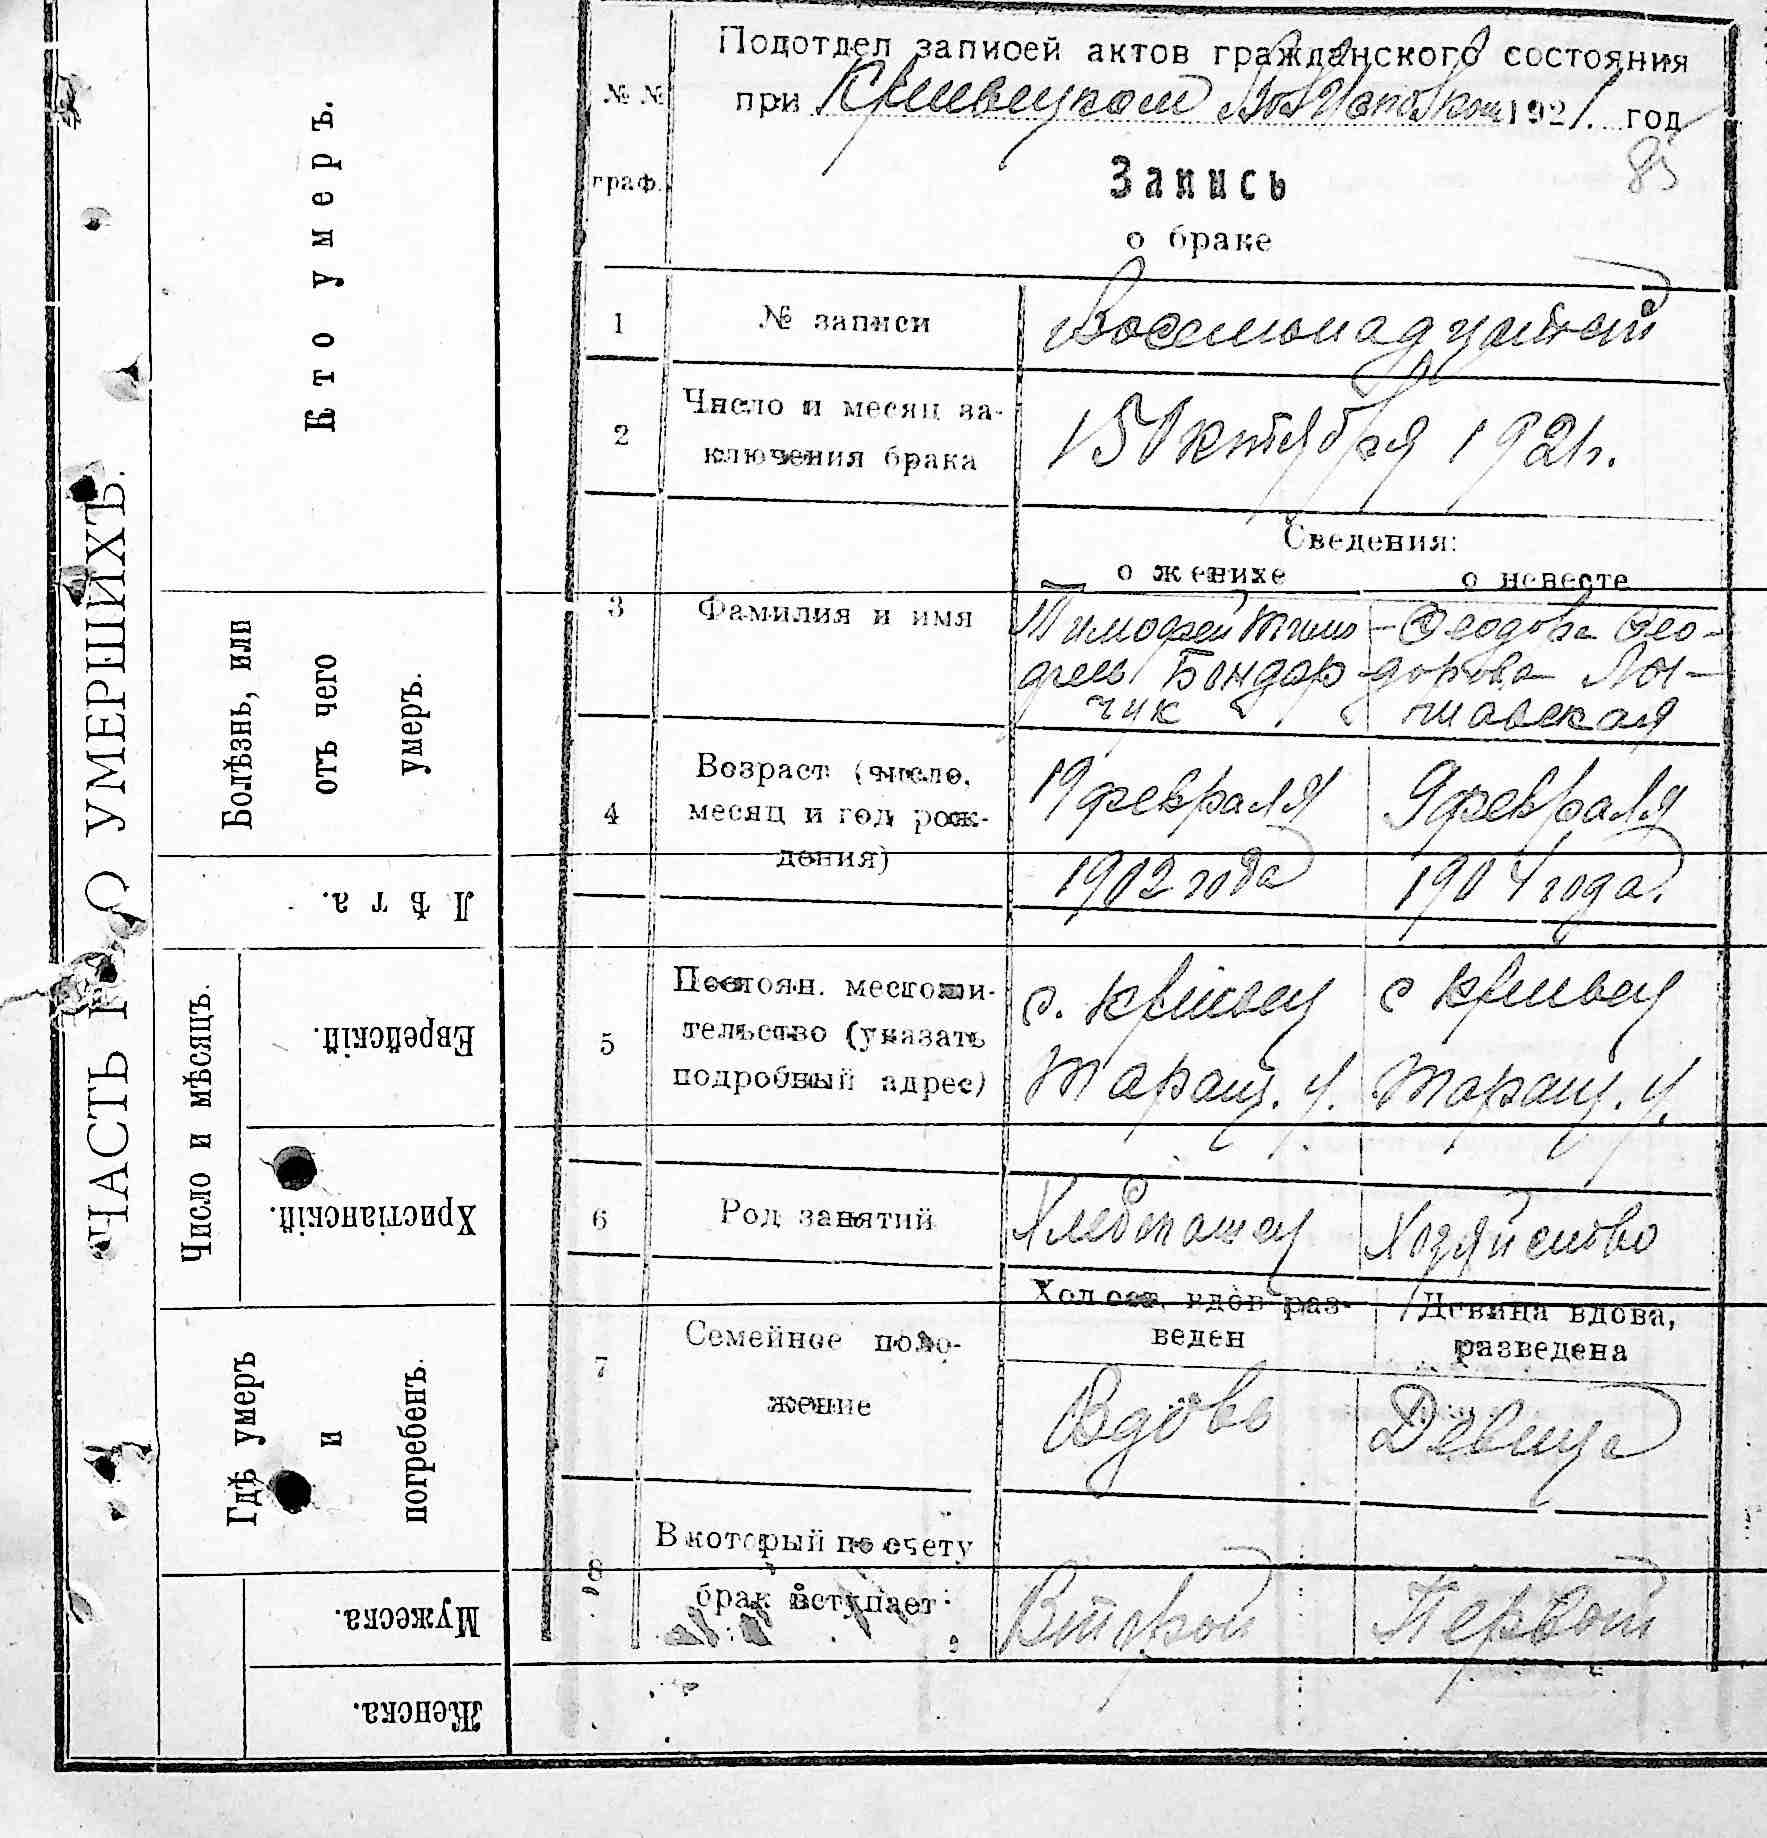 ЧАСТЬ О УМЕРШИХЪ.
Кто умеръ.
Болѣзнь, или
отъ чего
умеръ.
Лѣта.
Число и мѣсяцъ.
Еврейскій.
Христіанскій.
Гдѣ умеръ
и
погребенъ.
Мужеска.
Женска.
Подотдел записей актов гражданского состояния
№ №
при Кривецком 1921. год
85
граф.
Запись
о браке
1 № записи Восемьнадцатый
2 Число и месяц за-
ключения брака 15 Октября 1921 г.
Сведения:
о женихе о невесте
3 Фамилия и имя Тимофей Тимо- Феодора Фео-
феев Бондар- дорова Ло-
чук шавская
4 Возраст (число, 19 февраля 9 февраля
месяц и год рож-
дения) 1902 года 1904 года.
5 Постоян. местожи- с. Кривец с Кривец
тельство (указать
подробный адрес) Таращ. у. Таращ. у.
6 Род занятий Хлебопашец Хозяйство
7 Семейное поло-
жение
Холост, вдов раз- Девица вдова,
веден разведена
Вдовъ Девица
8 В который по счету
брак вступает Второй Первой